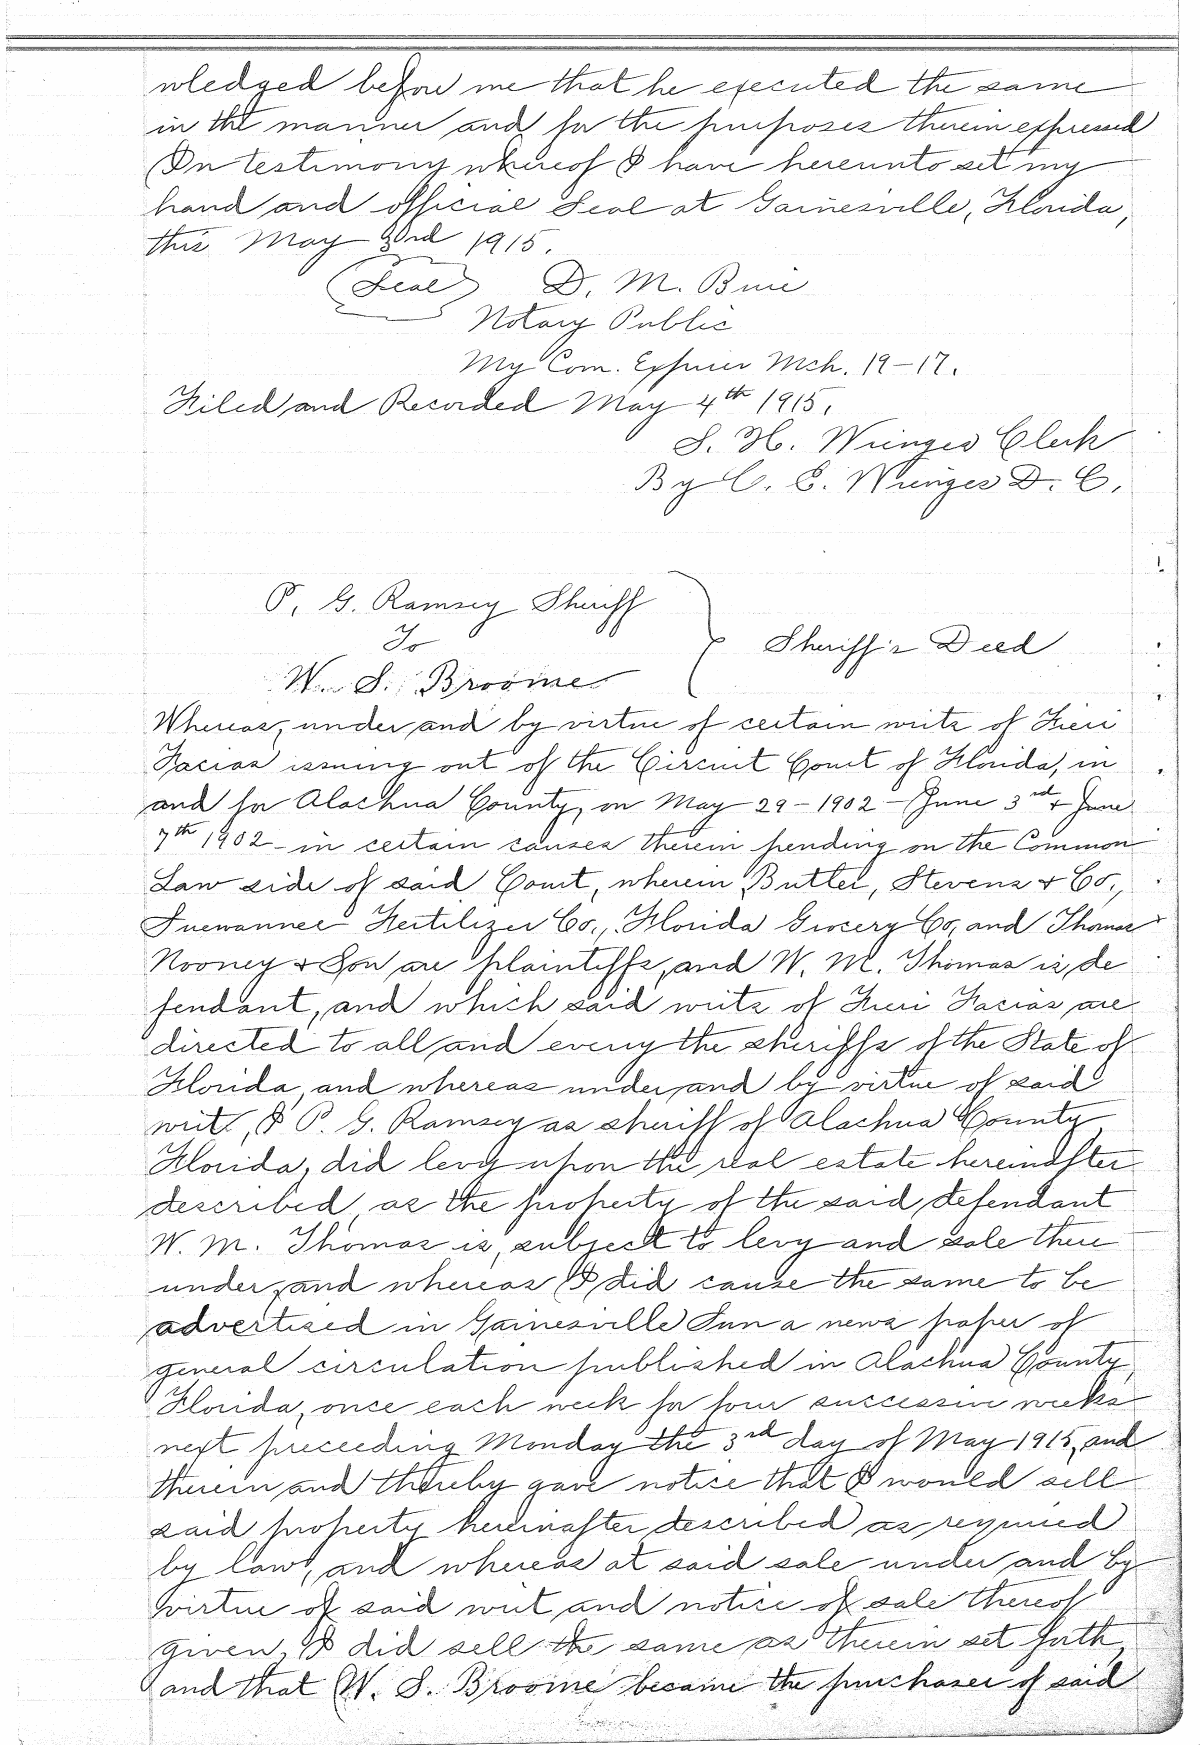 wledged before me that he executed the same
in the manner and for the purposes therein expressed
In testimony whereof I have hereunto set my
hand and official Seal at Gainesville, Florida,
this May 3rd 1915.
(Seal) D. M. Buie
Notary Public
My Com. Expires Mch. 19-17.
Filed and Recorded May 4th 1915.
S. H. Wienges Clerk
By C. E. Wienges D. C.
P. G. Ramsey Sheriff
To
Sheriff's Deed
W. S. Broome
Whereas, under and by virtue of certain writs of Fieri
Facias issuing out of the Circuit Court of Florida, in
and for Alachua County, on May 29-1902-June 3rd + June
7th 1902-in certain causes therein pending on the Common
Law side of said Court, wherein Butler, Stevens + Co.,
Suewannee Fertilizer Co., Florida Grocery Co, and Thomas
Nooney + Son are plaintiffs, and W. M. Thomas is, de
fendant, and which said writs of Fieri Facias are
directed to all and every the sheriffs of the State of
Florida, and whereas under and by virtue of said
writ, I P. G. Ramsey as sheriff of Alachua County
Florida, did levy upon the real estate hereinafter
described, as the property of the said defendant
W. M. Thomas is, subject to levy and sale there
under, and whereas I did cause the same to be
advertised in Gainesville Sun a news paper of
general circulation published in Alachua County,
Florida, once each week for four successive weeks
next preceeding Monday the 3rd day of May 1915, and
therein and thereby gave notice that I would sell
said property hereinafter described as required
by law, and whereas at said sale under and by
virtue of said writ, and notice of sale thereof
given, I did sell the same as therein set forth,
and that W. S. Broome became the purchaser of said